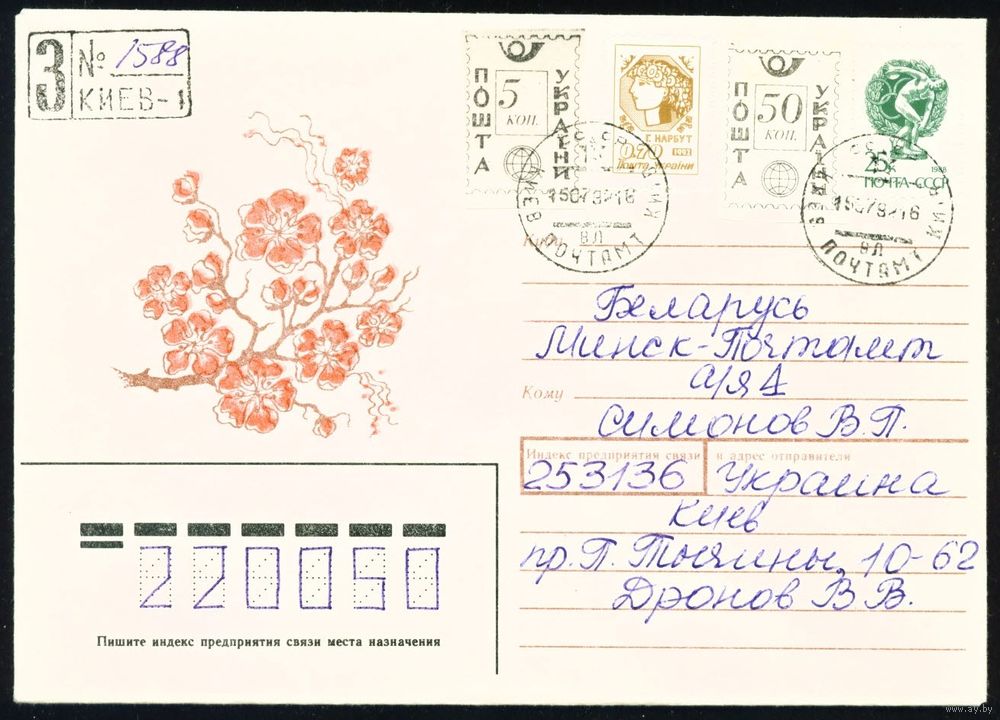 З
№ 1588
КИЕВ-1
ПОШТА
5
КОП.
УКРАЇНИ
Г. НАРБУТ
0.70 1992
Пошта України
ПОШТА
50
КОП.
УКРАЇНИ
25к 1988
ПОЧТА СССР
КИЕВ ПОЧТАМТ
ВЛ
ПОЧТАМТ
ВЛ
Куда
Беларусь
Минск-Почтамт
а/я 1
Кому
Симонов В.П.
Индекс предприятия связи и адрес отправителя
253136 Украина
Киев
пр. П. Тычины, 10-62
Дронов В.В.
220050
Пишите индекс предприятия связи места назначения
www.ay.by